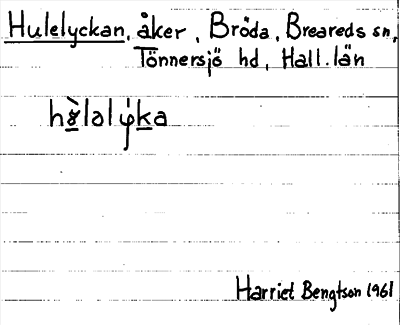 Hulelyckan, åker, Bröda, Breareds sn,
Tönnersjö hd, Hall. län
hɤ̠̀lalýk̠a
Harriet Bengtson 1961